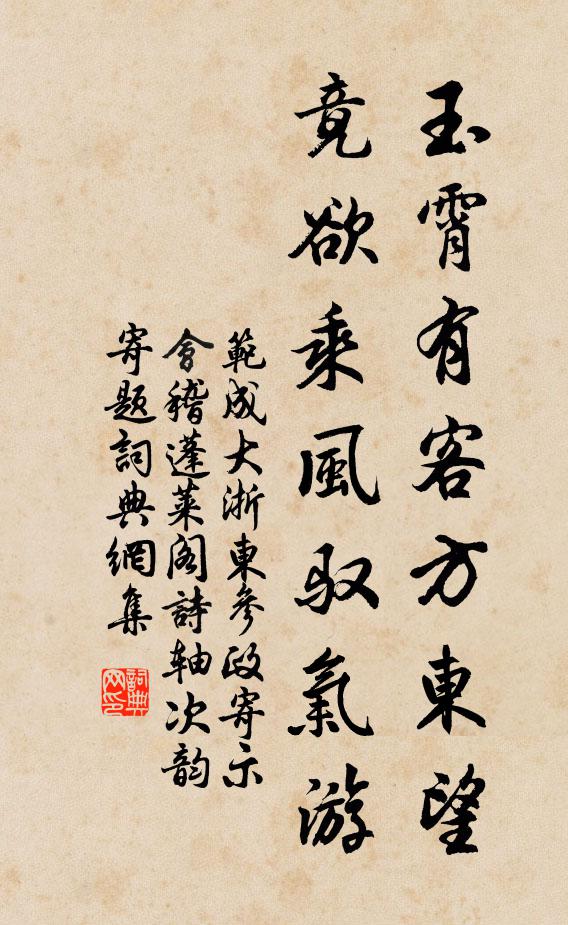 玉霄有客方東望
竟欲乘風馭氣游
範成大浙東參政寄示
會稽蓬萊閣詩軸次韵
寄題詞典網集
詞典网印